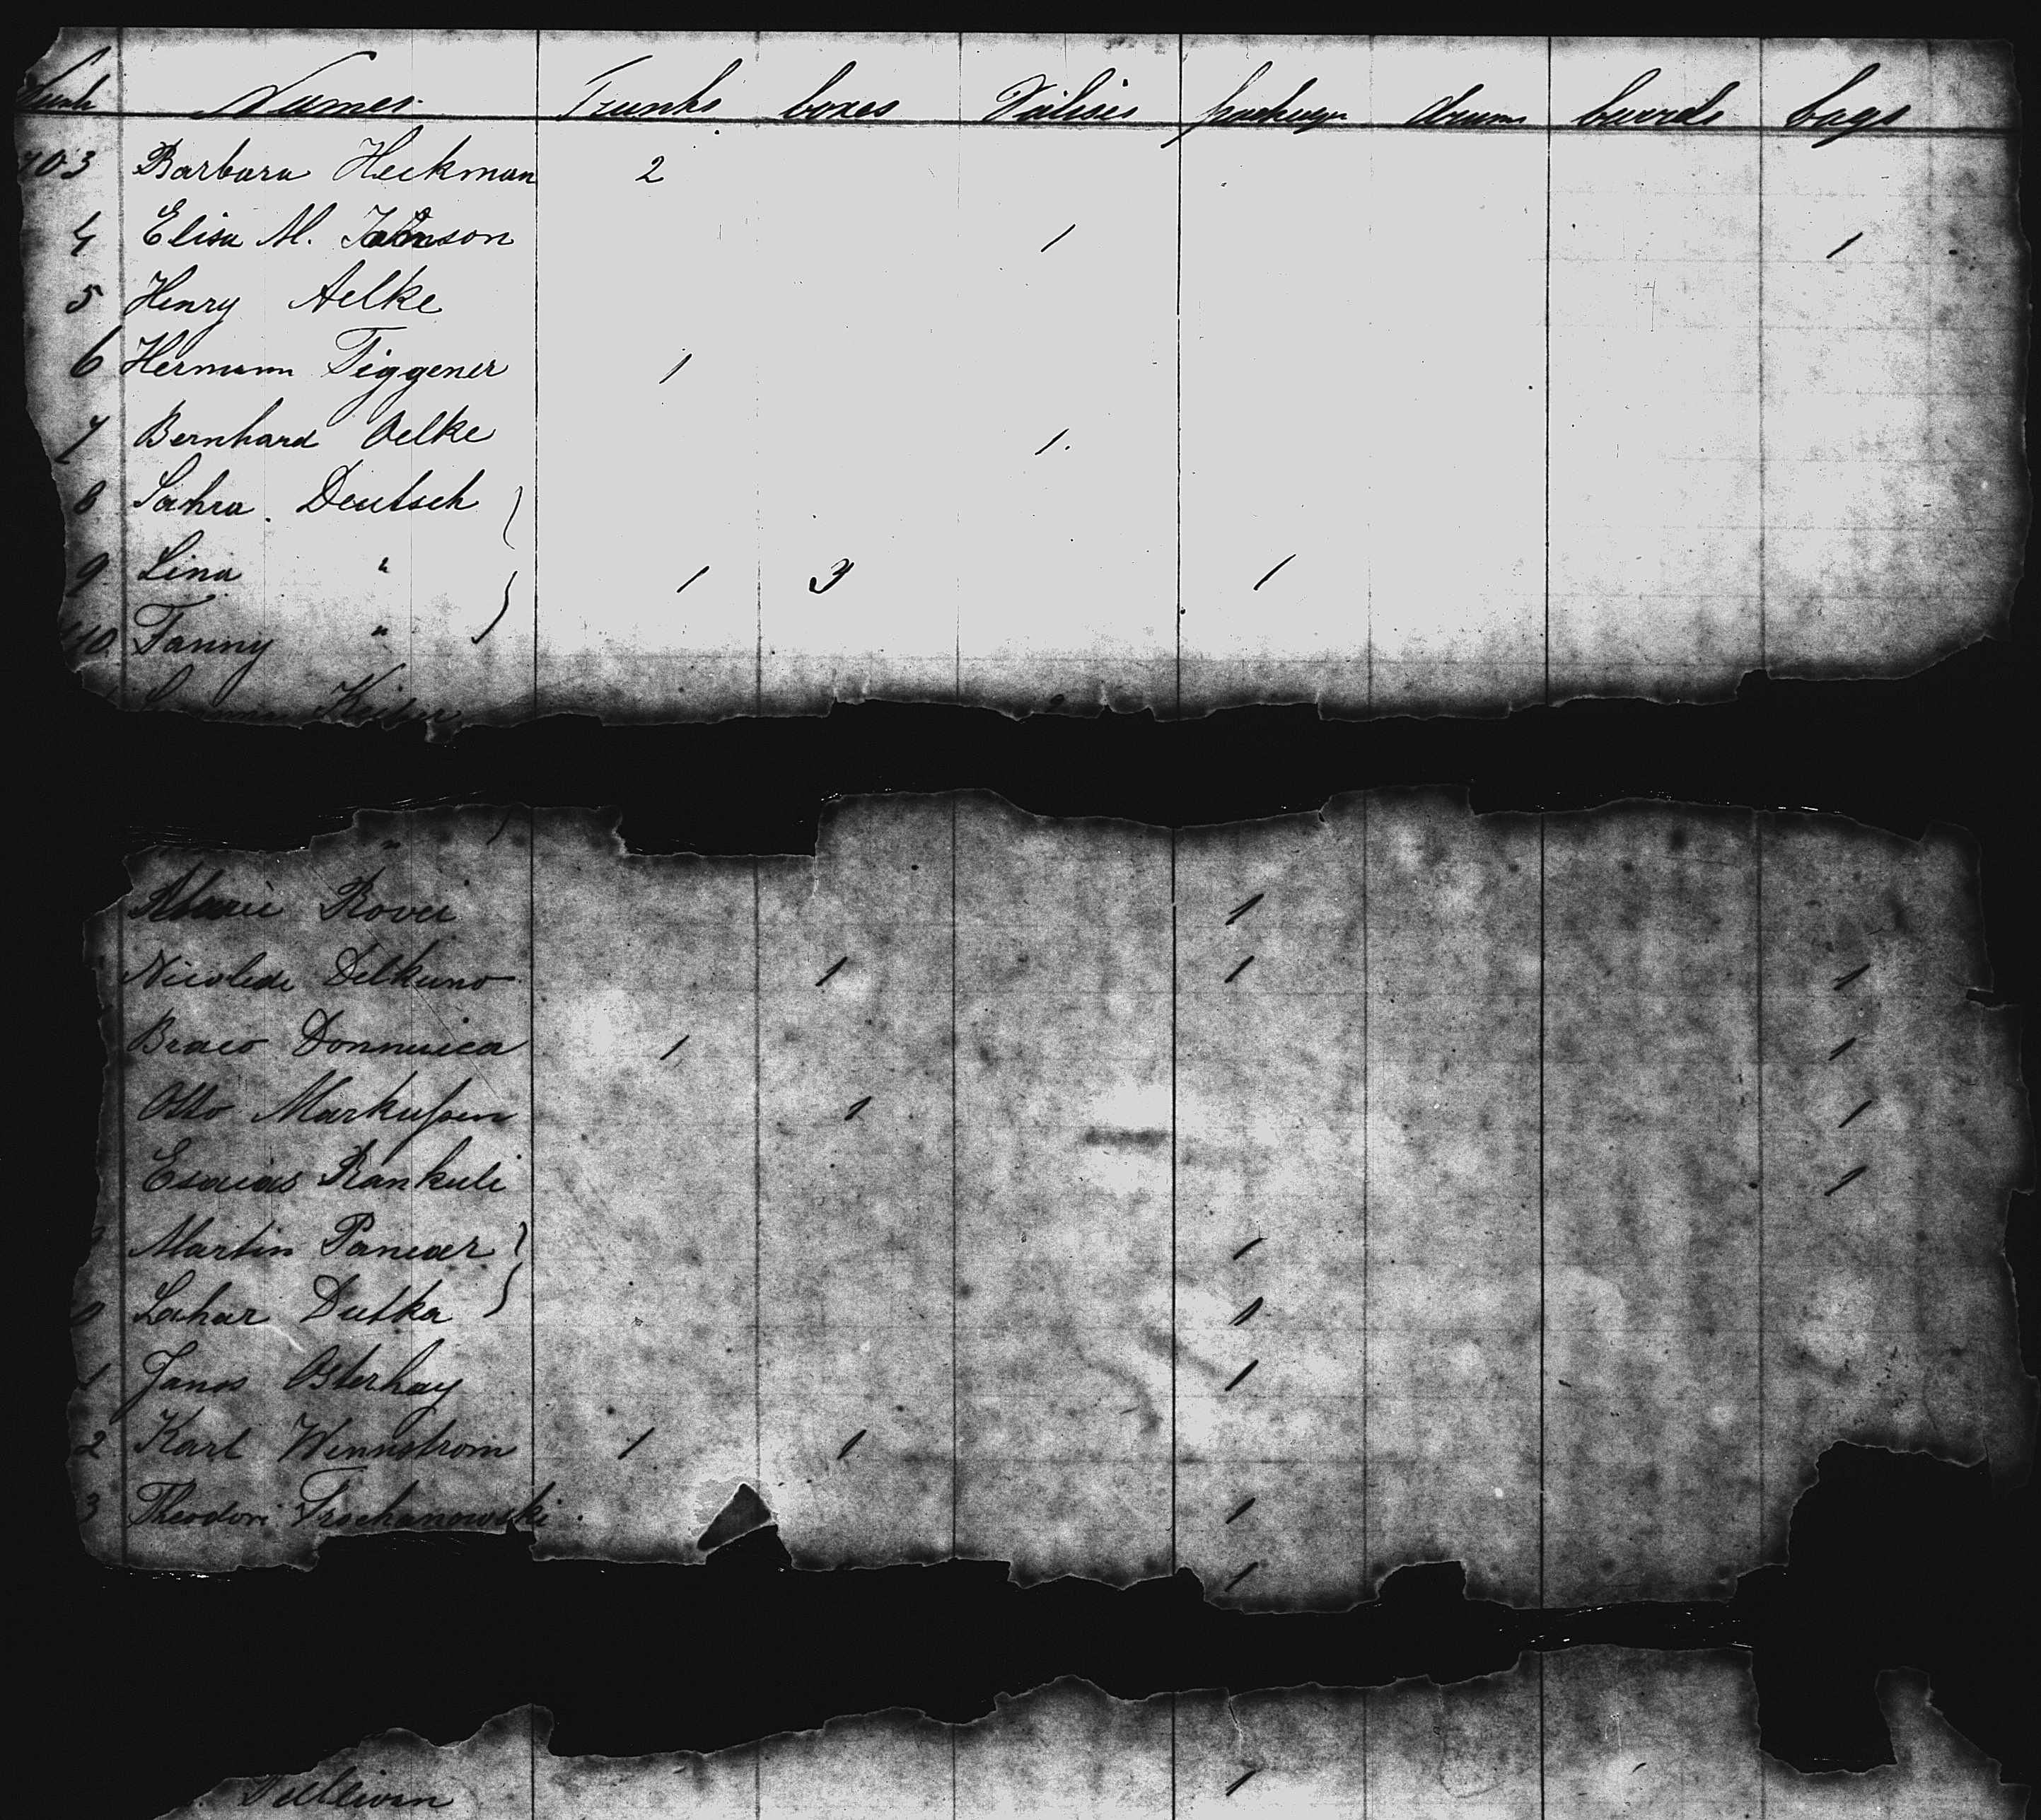 Names Trunks boxes Valises packages drums barrels bags
703 Barbara Heckman 2
4 Elisa M. Johnson 1 1
5 Henry Aelke
6 Hermann Tiggener 1
7 Bernhard Oelke 1.
8 Sahra. Deutsch }
9 Lina " } 1 3 1
10 Fanny "
Keiser
"
Marie Rover 1
Nicolede Delkuno 1 1 1
Braco Donnuica 1 1
Otto Markussen 1 1
Esaias Rankuli 1
Martin Pancar } 1
0 Lahar Dutka } 1
1 Janos Osterhay 1
2 Karl Wennstrom 1 1
3 Theodori Trochanowski. 1
1
Sullivan 1